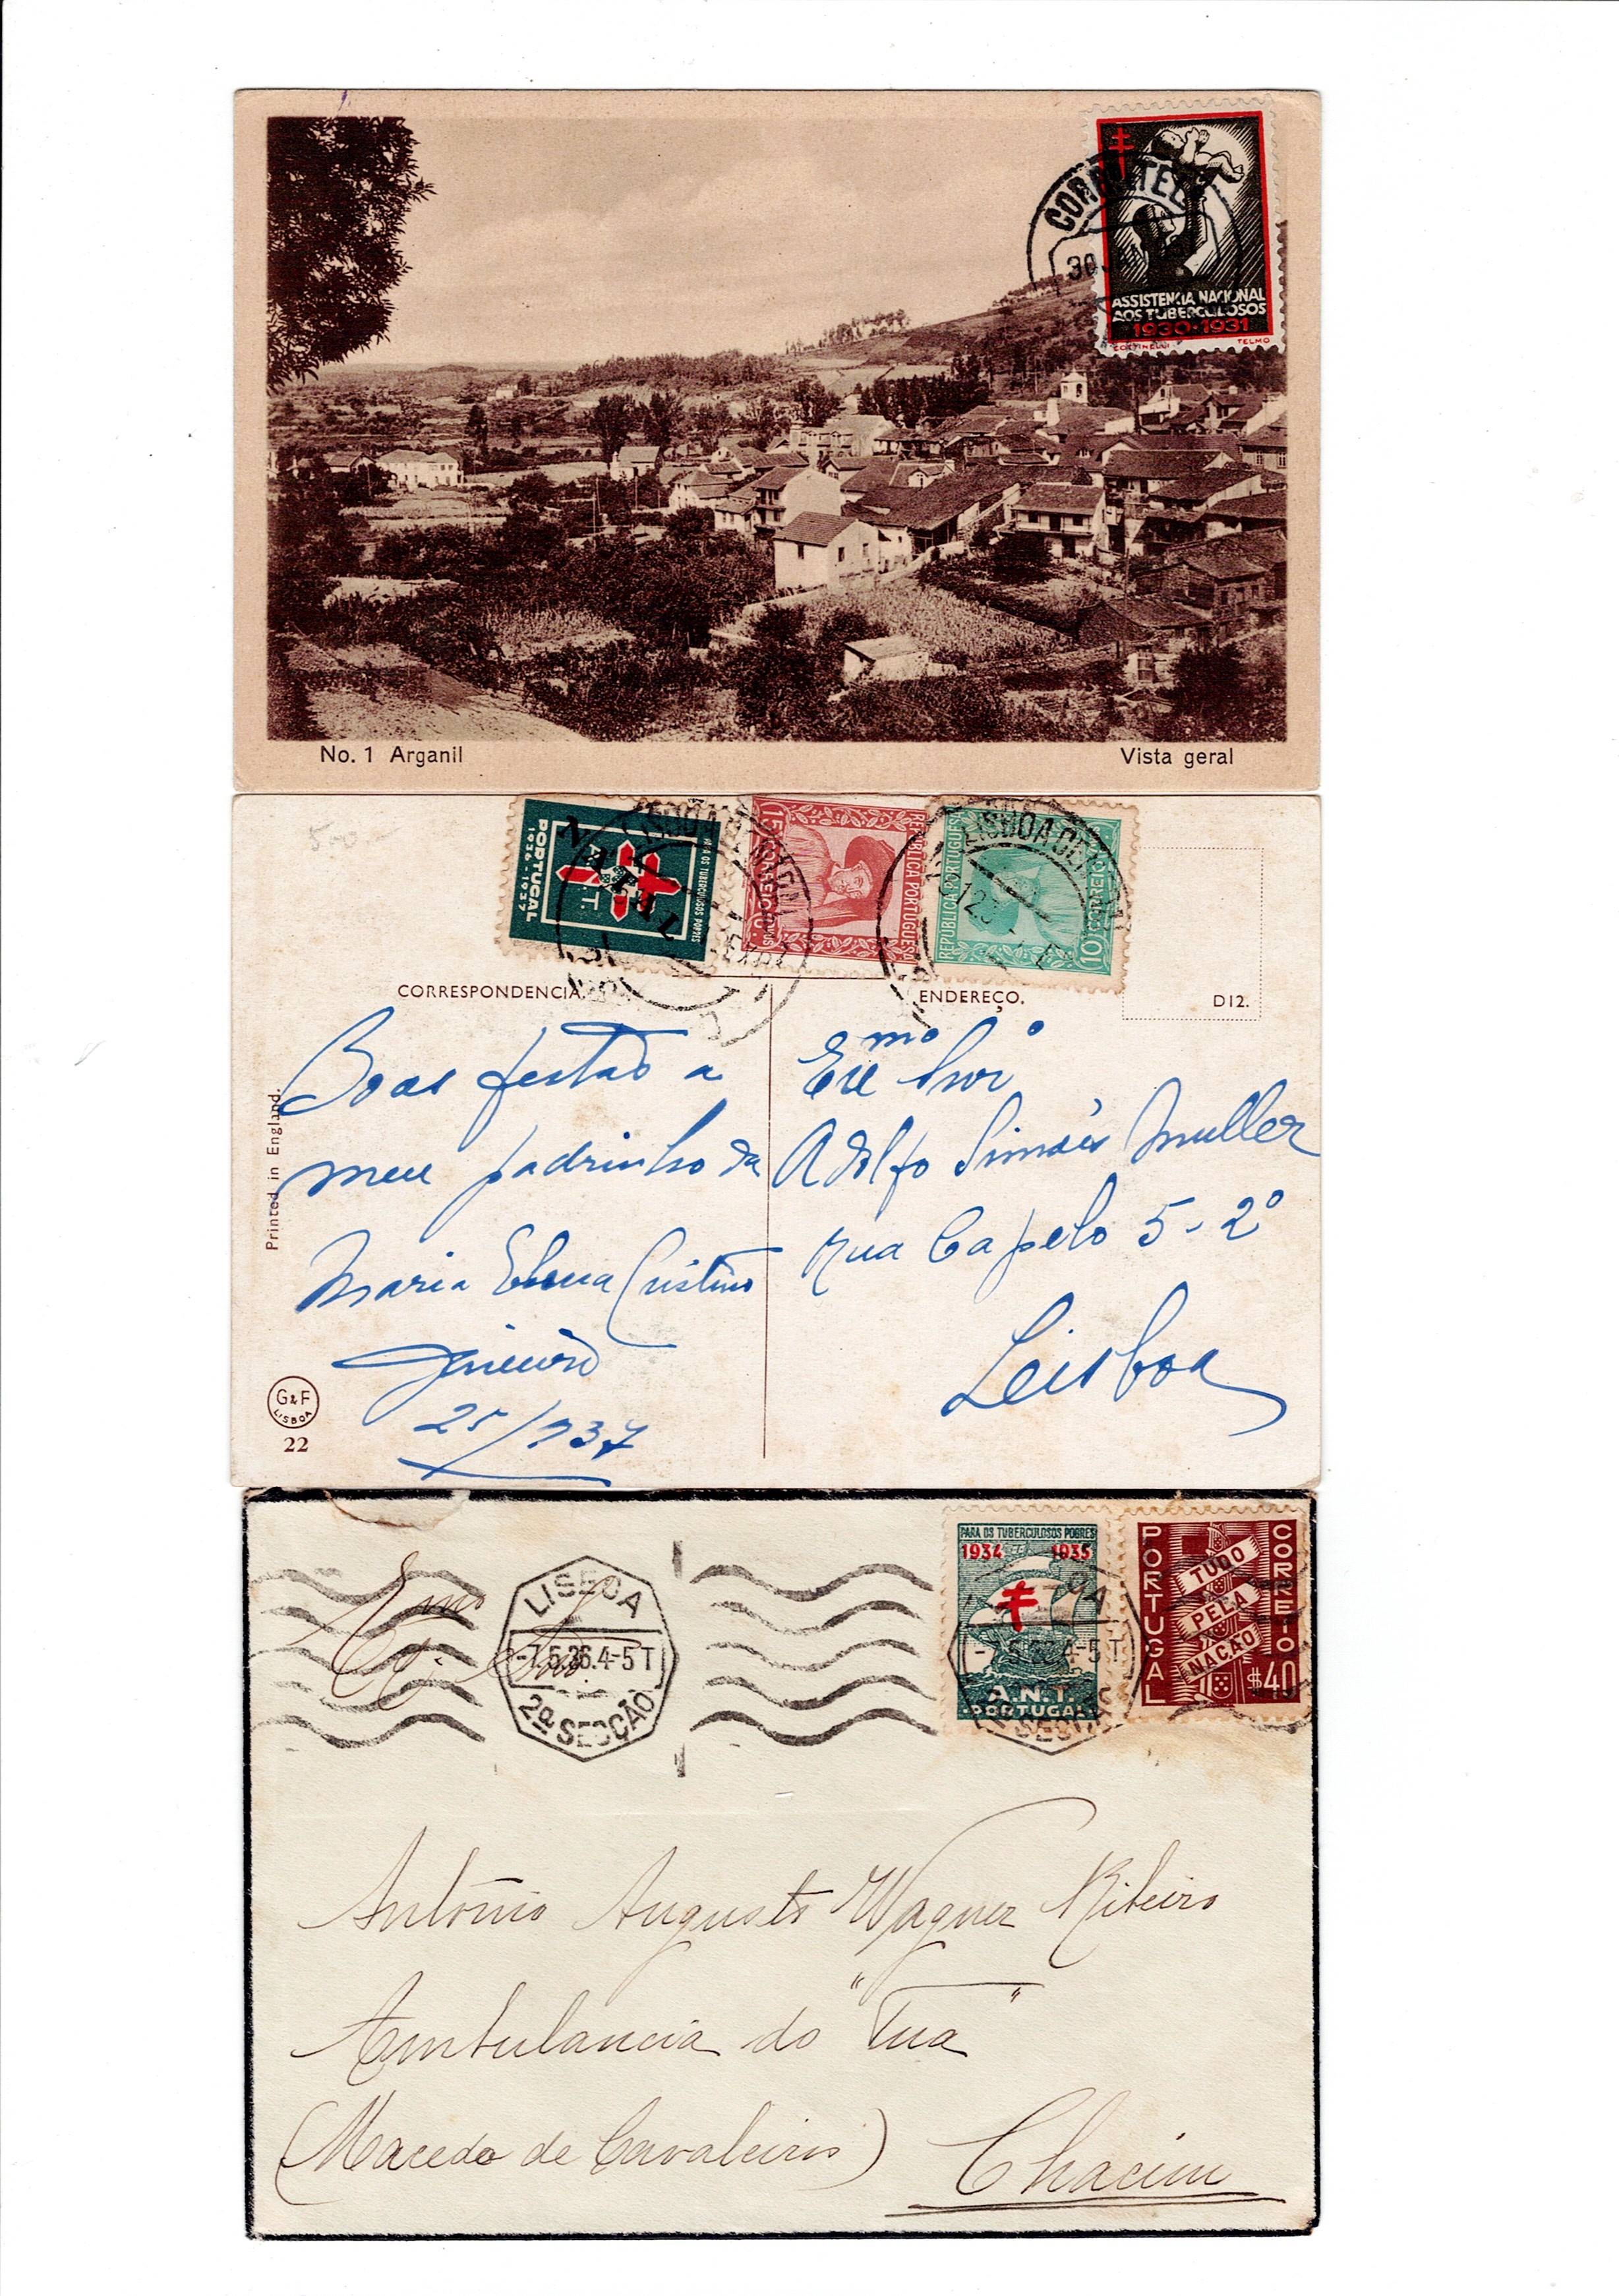 CORREIO TEL
30 JA
ASSISTENCIA NACIONAL
AOS TUBERCULOSOS
1930-1931
TELMO
No. 1 Arganil
Vista geral
5-0-
PARA OS TUBERCULOSOS POBRES
A.N.T.
PORTUGAL
1936-1937
REPUBLICA PORTUGUESA
15
CORREIO
REPUBLICA PORTUGUESA
10
CORREIO
LISBOA CENTRAL
CORRESPONDENCIA.
ENDEREÇO.
D12.
Boas festas a
meu padrinho da
Maria Elena Cristino
25/
Exmo Snr
Adolfo Simões Muller
Rua Capelo 5-2º
Leisboa
Printed in England.
G&F
LISBOA
22
PARA OS TUBERCULOSOS POBRES
1934 1935
A.N.T.
PORTUGAL
PORTUGAL
CORREIO
TUDO
PELA
NAÇÃO
$40
LISBOA
-7.5.36.4-5T
2ª SECÇÃO
Exmo
Snr.
António Augusto Wagner Ribeiro
Ambulancia do "Tua"
(Macedo de Cavaleiros) Chacim